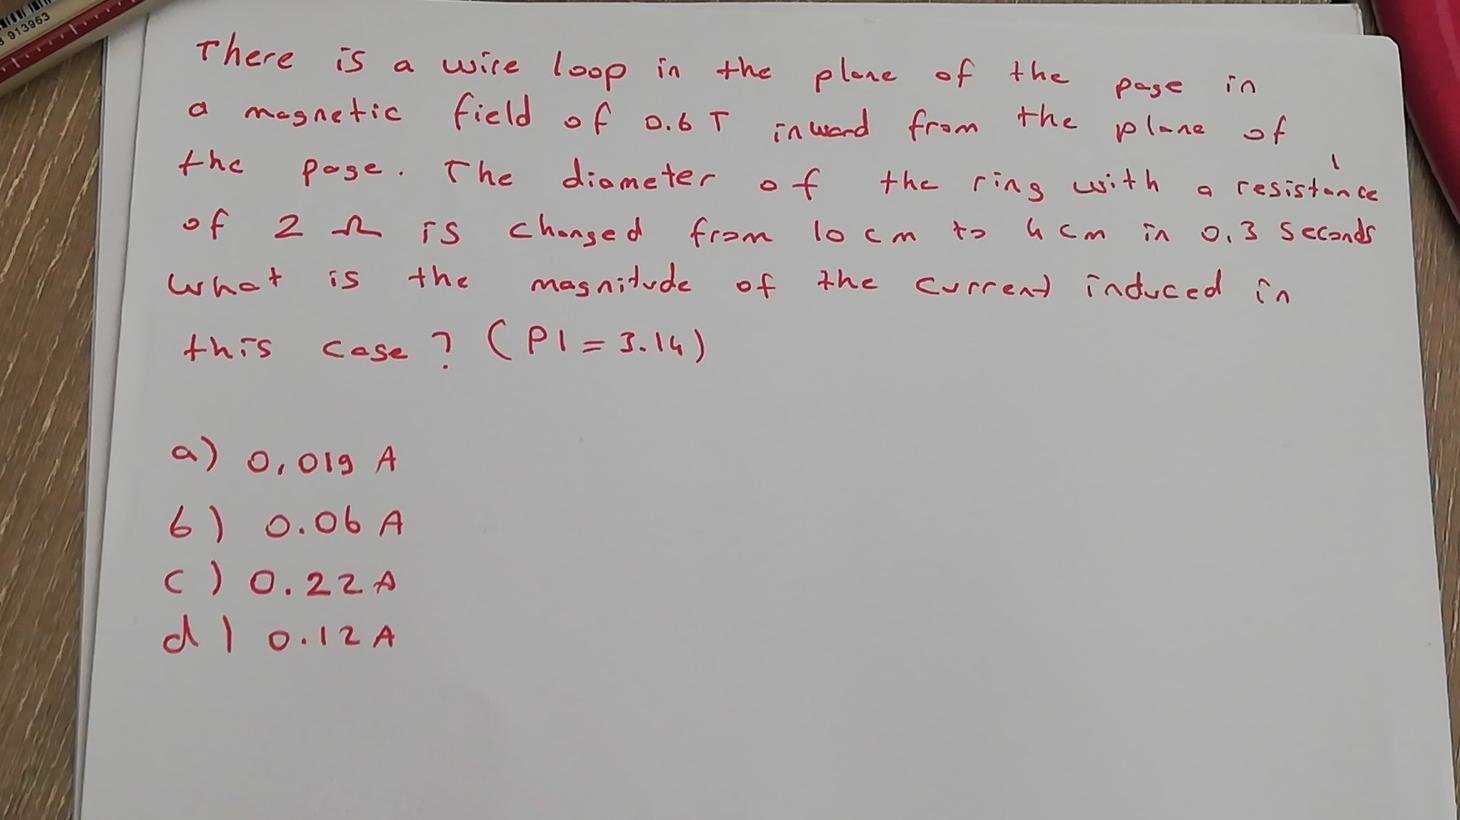 913963
There is a wire loop in the plane of the page in
a magnetic field of 0.6 T inward from the plane of
the page. The diameter of the ring with a resistance
of 2 Ω is changed from 10 cm to 4 cm in 0,3 seconds
what is the magnitude of the current induced in
this case? (PI = 3.14)
a) 0,019 A
b) 0.06 A
c) 0.22 A
d) 0.12 A